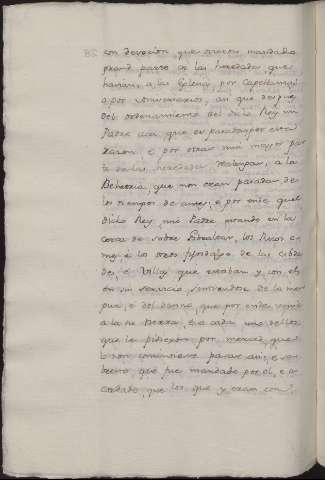 con devocion, que ovieron, mandado
grand parte de las heredades que
havian, a las Eglesias por Capellanias
o por Aniversarios, asi que despues
del ordenamiento del dicho Rey mi
Padre aca que es pasado por esta
razon e por otras mui mayor par
te de las heredades realengas, a la
Behetria, que non eran pasadas de
los tiempos de antes, e por ende quel
dicho Rey, mio Padre estando en la
cerca de sobre Gibraltar, los Ricos o
mes e los otros fijosdalgo de las cibda
des, e Villas que estaban y con el
en su servicio, sintiendose de la men
gua, e del danno, que por ende venie
a la su tierra, e a cada uno dellos
que le pidieron por merced que
lo non consintiese pasar asi, e so
bresto, que fue mandado por el, e or
denado que los que y eran con